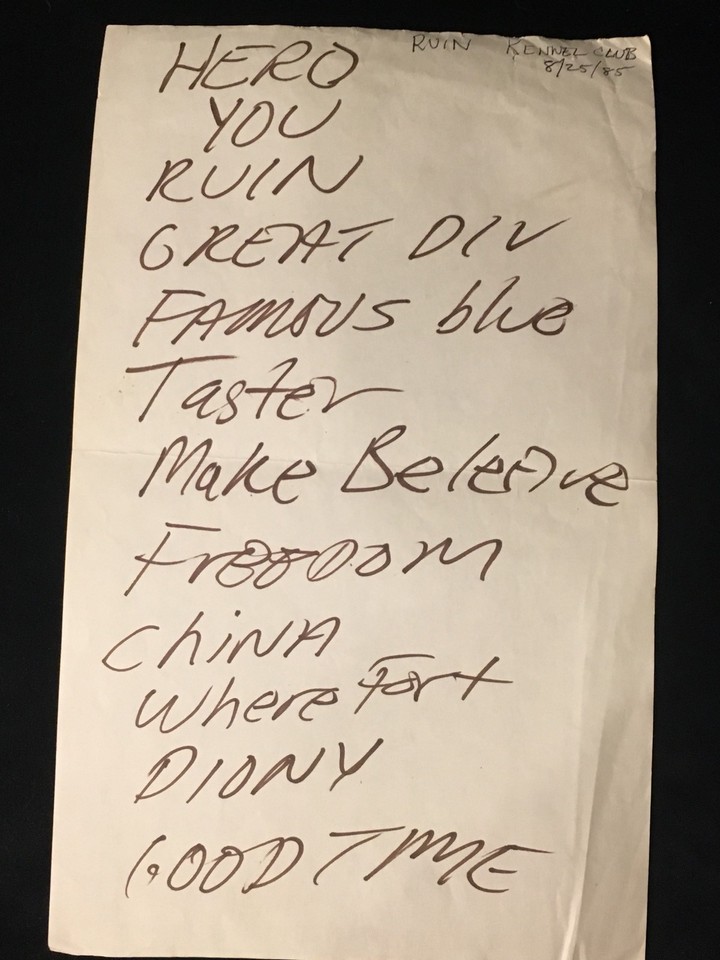 RUIN KENNEL CLUB
8/25/85
HERO
YOU
RUIN
GREAT DIV
FAMOUS blue
Taster
Make Beleive
Freedom
ChiNA
Where Fort
DIONY
GOOD TIME